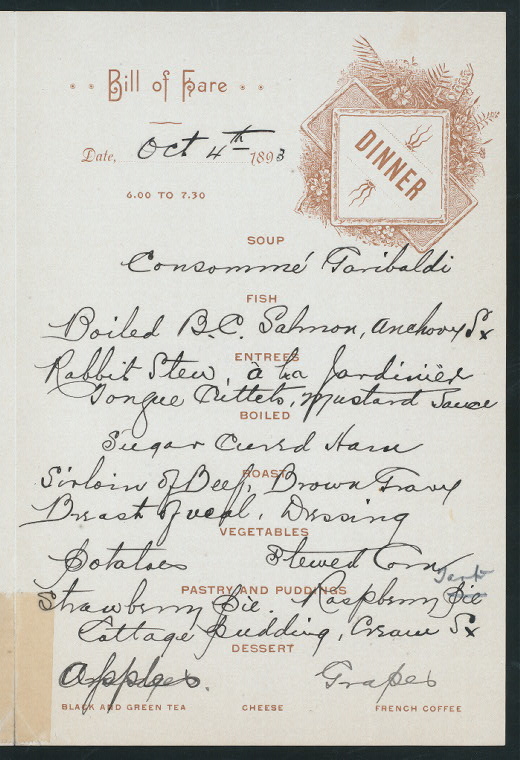 Bill of Fare
Date, Oct 4th 1893
DINNER
6.00 TO 7.30
SOUP
Consommé Garibaldi
FISH
Boiled B.C. Salmon, Anchovy Sx
ENTREES
Rabbit Stew, à La Jardinièr
Tongue Cuttlets, Mustard Sauce
BOILED
Sugar Cured Ham
ROAST
Sirloin of Beef, Brown Gravy
Breast of veal, Dressing
VEGETABLES
Potatoes Stewed Corn
PASTRY AND PUDDINGS
Strawberry Pie. Raspberry Pie Tart
Cottage Pudding, Cream Sx
DESSERT
Apples. Grapes
BLACK AND GREEN TEA CHEESE FRENCH COFFEE